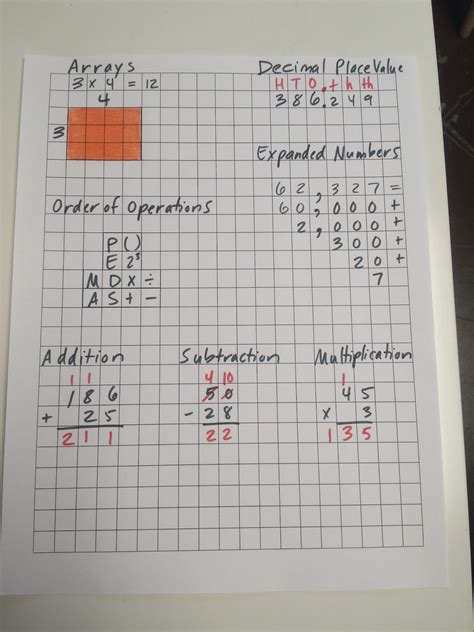 Arrays
3 x 4 = 12
4
3
Decimal Place Value
H T O . t h th
3 8 6 . 2 4 9
Expanded Numbers
6 2 , 3 2 7 =
6 0 , 0 0 0 +
2 , 0 0 0 +
3 0 0 +
2 0 +
7
Order of Operations
P ( )
E 2³
M D x ÷
A S + -
Addition
1 1
1 8 6
+ 2 5
2 1 1
Subtraction
4 10
5 0
- 2 8
2 2
Multiplication
1
4 5
x 3
1 3 5